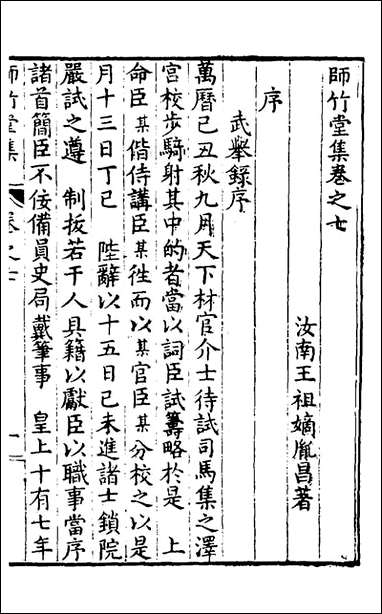 師竹堂集卷之七
汝南王祖嫡胤昌著
序
武舉錄序
萬曆己丑秋九月天下材官介士待試司馬集之澤
宮校步騎射其中的者當以詞臣試籌略於是 上
命臣某偕侍講臣某徃而以某官臣某分校之以是
月十三日丁巳 陛辭以十五日己未進諸士鎖院
嚴試之遵 制拔若干人具籍以獻臣以職事當序
諸首簡臣不佞備員史局戴筆事 皇上十有七年
師竹堂集 卷之七 一